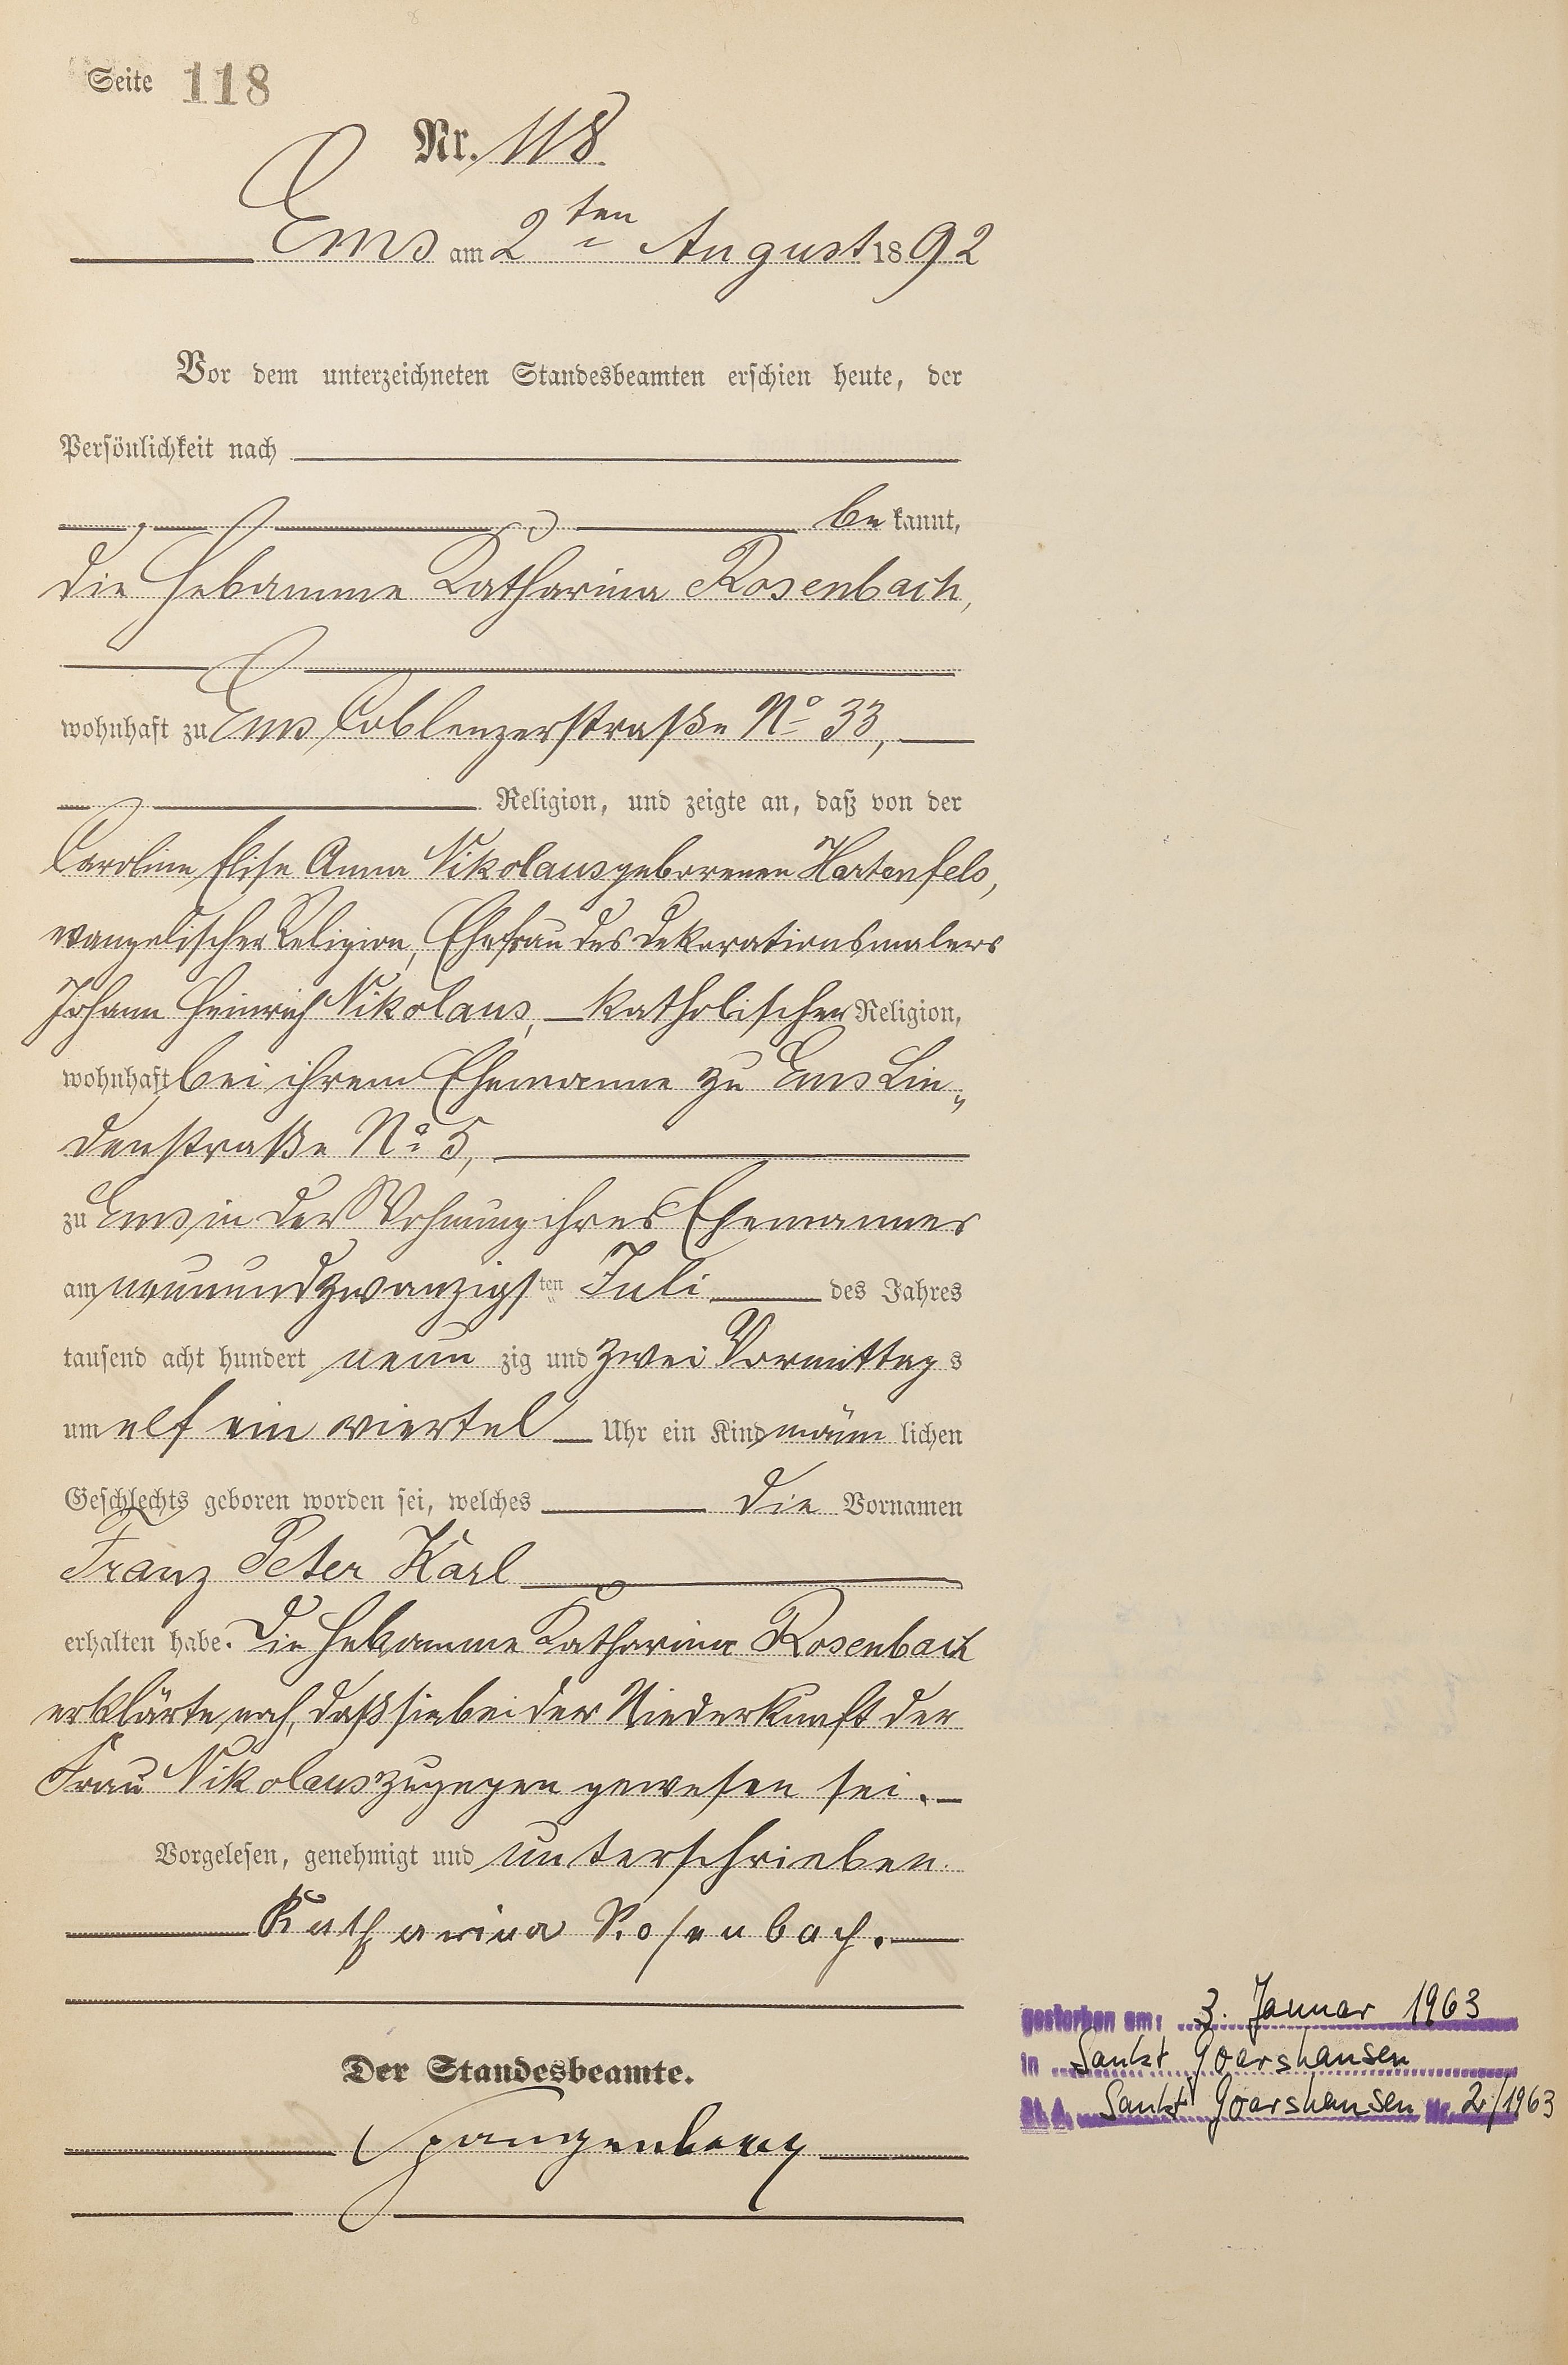 Seite 118
Nr. 118.
Ems am 2ten August 1892
Vor dem unterzeichneten Standesbeamten erschien heute, der
Persönlichkeit nach
be kannt,
die Hebamme Katharina Rosenbach,
wohnhaft zu Ems Coblenzerstraße No 33,
Religion, und zeigte an, daß von der
Caroline Elise Anna Nikolaus geborenen Hartenfels,
evangelischer Religion, Ehefrau des Dekorationsmalers
Johann Heinrich Nikolaus, katholischer Religion,
wohnhaft bei ihrem Ehemanne zu Ems Lin„
denstraße No 5,
zu Ems in der Wohnung ihres Ehemannes
am neunundzwanzigsten Juli des Jahres
tausend acht hundert neun zig und zwei Vormittag s
um elf ein viertel Uhr ein Kind männ lichen
Geschlechts geboren worden sei, welches die Vornamen
Franz Peter Karl
erhalten habe. Die Hebamme Katharina Rosenbach
erklärte noch, daß sie bei der Niederkunft der
Frau Nikolaus zugegen gewesen sei.
Vorgelesen, genehmigt und unterschrieben.
Katharina Rosenbach.
Der Standesbeamte.
Spangenberg
gestorben am: 3. Januar 1963
in Sankt Goarshausen
St. A. Sankt Goarshausen Nr. 2/1963